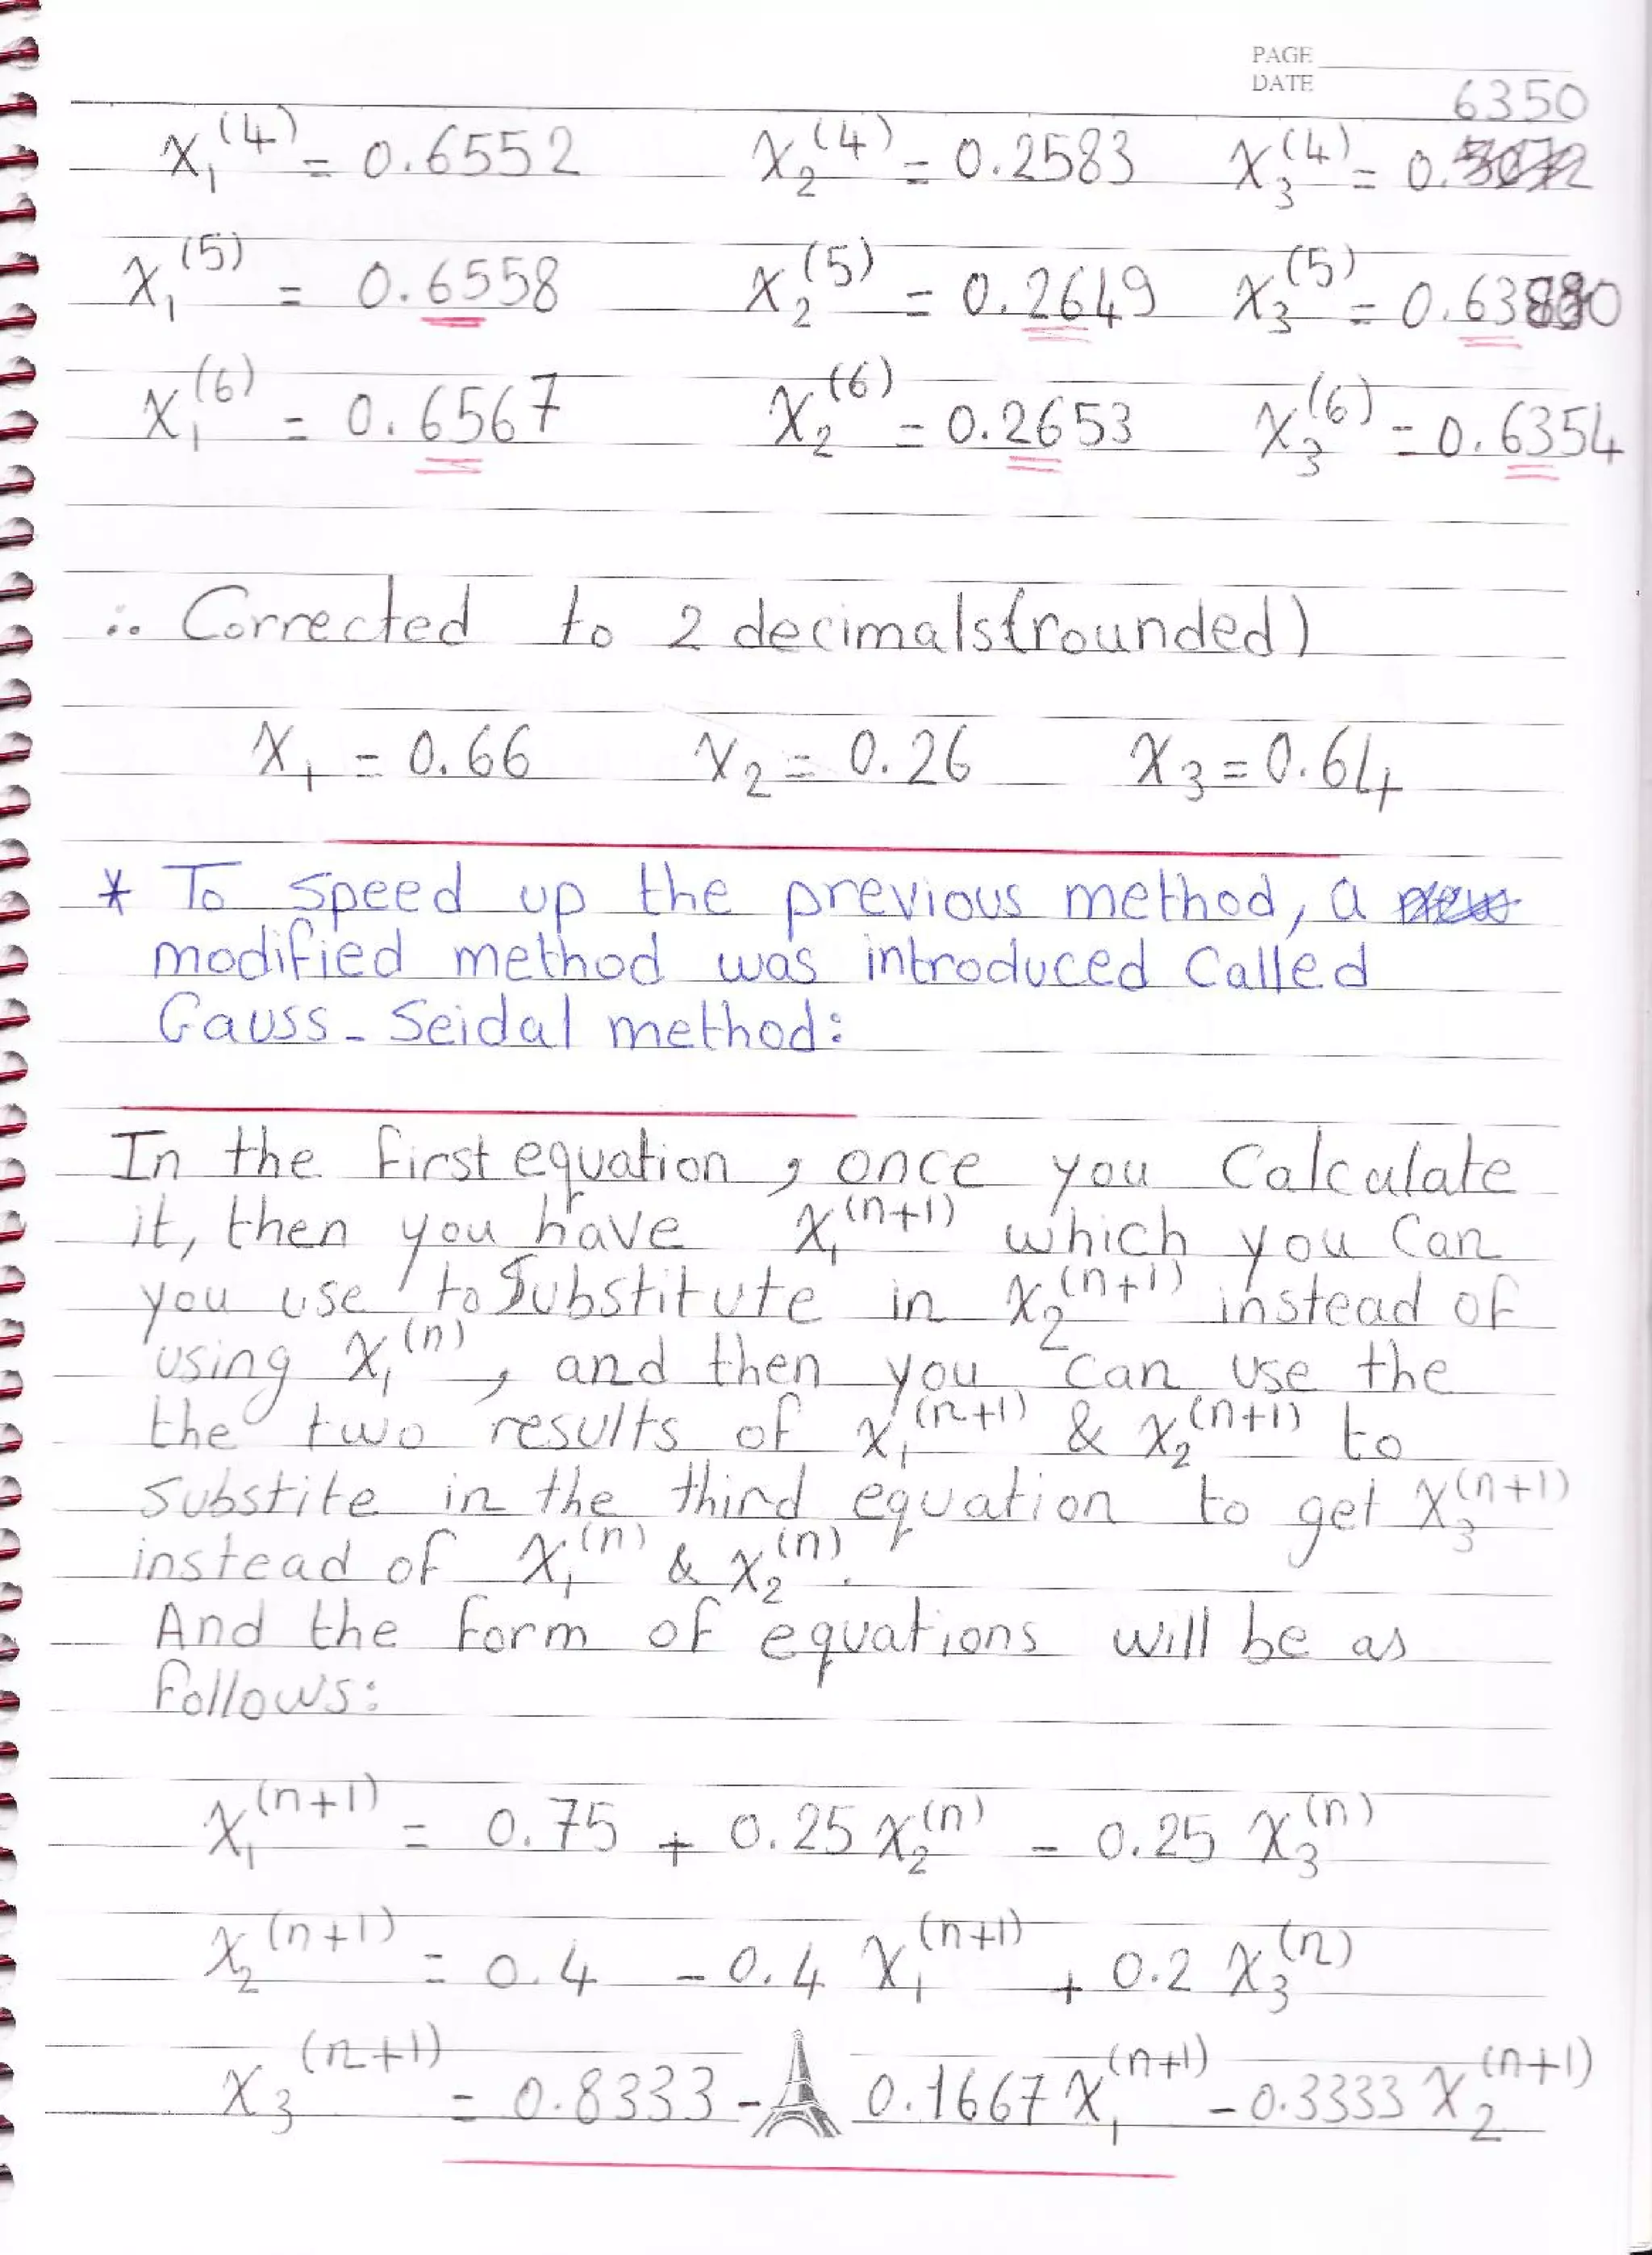 PAGE
DATE
6350
x₁⁽⁴⁾ = 0.6552 x₂⁽⁴⁾ = 0.2583 x₃⁽⁴⁾ = 0.
x₁⁽⁵⁾ = 0.6558 x₂⁽⁵⁾ = 0.2649 x₃⁽⁵⁾ = 0.6380
x₁⁽⁶⁾ = 0.6567 x₂⁽⁶⁾ = 0.2653 x₃⁽⁶⁾ = 0.6354
∴ Corrected to 2 decimals(rounded)
x₁ = 0.66 x₂ = 0.26 x₃ = 0.64
* To speed up the previous method, a
modified method was introduced Called
Gauss - Seidal method:
In the first equation, once you Calculate
it, then you have x₁⁽ⁿ⁺¹⁾ which you Can
you use to Substitute in x₂⁽ⁿ⁺¹⁾ instead of
using x₁⁽ⁿ⁾, and then you can use the
the two results of x₁⁽ⁿ⁺¹⁾ & x₂⁽ⁿ⁺¹⁾ to
substite in the third equation to get x₃⁽ⁿ⁺¹⁾
instead of x₁⁽ⁿ⁾ & x₂⁽ⁿ⁾.
And the form of equations will be as
follows:
x₁⁽ⁿ⁺¹⁾ = 0.75 + 0.25 x₂⁽ⁿ⁾ - 0.25 x₃⁽ⁿ⁾
x₂⁽ⁿ⁺¹⁾ = 0.4 - 0.4 x₁⁽ⁿ⁺¹⁾ + 0.2 x₃⁽ⁿ⁾
x₃⁽ⁿ⁺¹⁾ = 0.8333 - 0.1667 x₁⁽ⁿ⁺¹⁾ - 0.3333 x₂⁽ⁿ⁺¹⁾